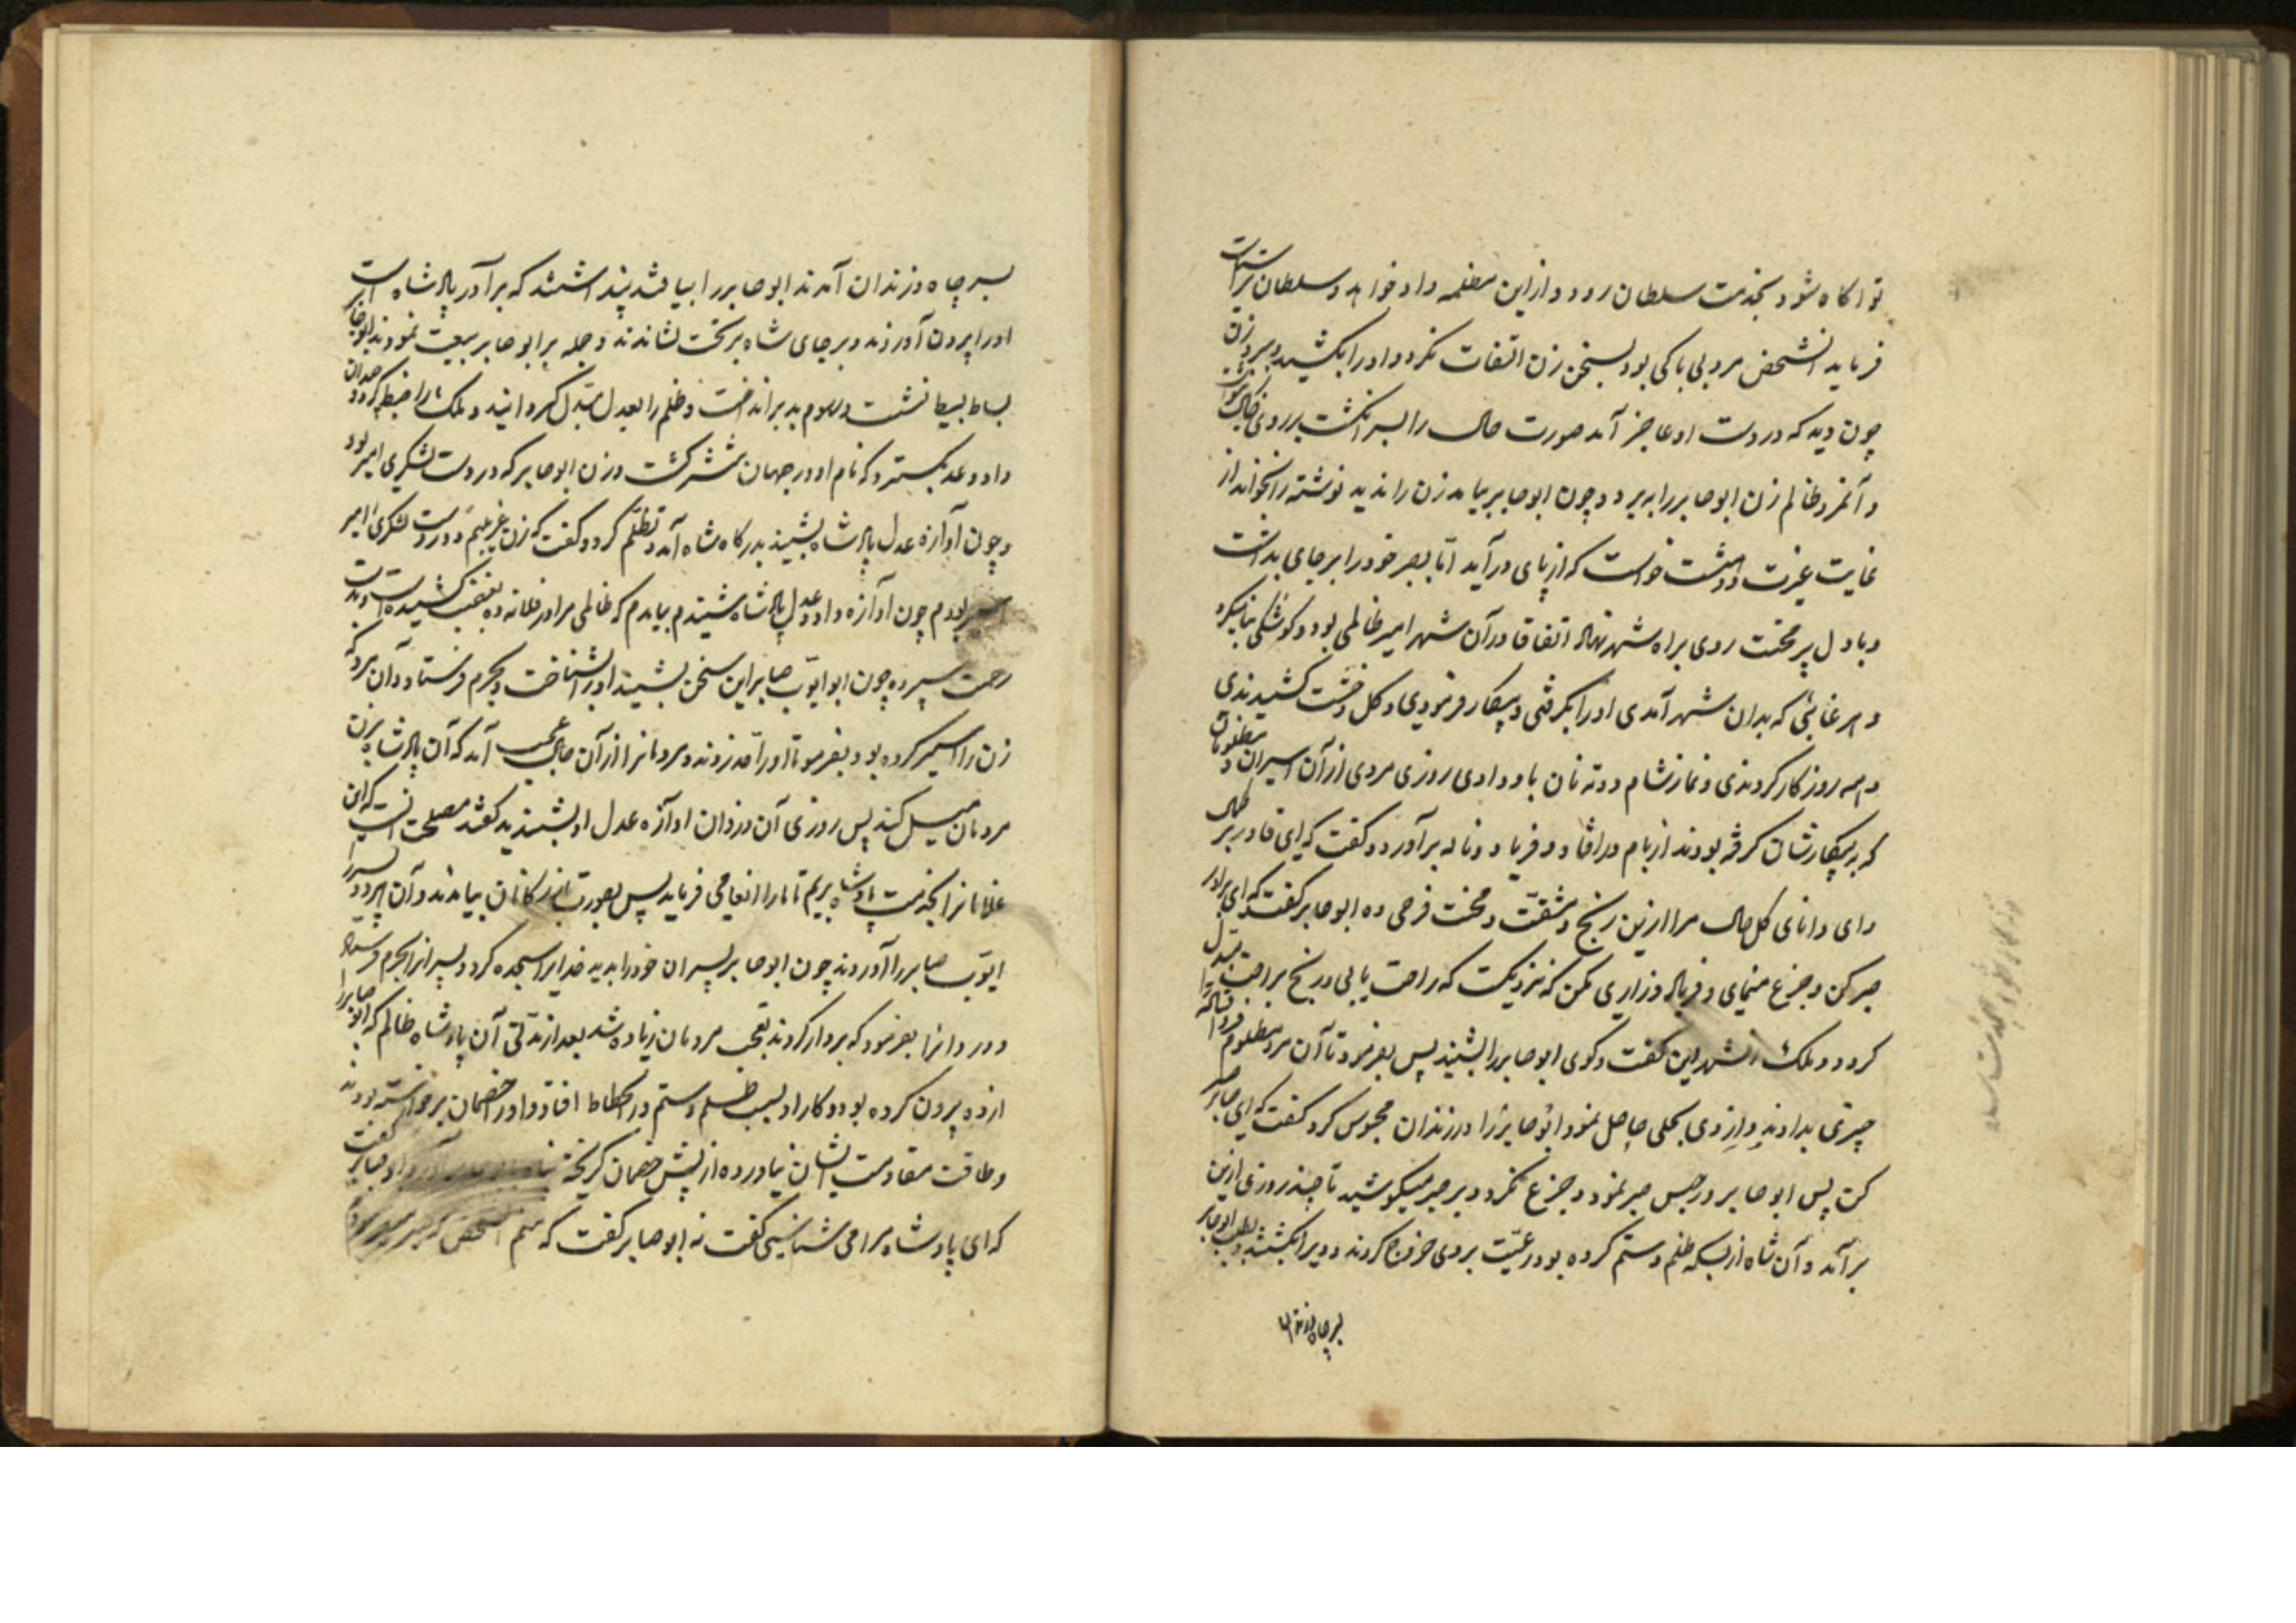 تو اکاه شود بخدمت سلطان رود و از این مظلمه داد خواهد و سلطان ترا سیاست
فرماید آنشخص مرد بی باکی بود بسخن زن التفات نکرد و او را بکشید و ببرد زن
چون دید که در دست او عاجز آمد صورت حال را بسر انکشت بر روی خاک بنوشت
و آنمرد ظالم زن ابو صابر را ببرد و چون ابو صابر بیامد زن را ندید نوشته را بخواند از
غایت غیرت و دهشت خواست که از پای در آید اما بصبر خود را بر جای بداشت
و با دل پر محنت روی براه شهر نهاد اتفاقا در آن شهر امیر ظالمی بود و کوشکی بنا میکرد
و هر غایبی که بدان شهر آمدی او را بگرفتی و بیکار فرمودی و کل و خشت کشیدندی
و همه روز کار کردندی و نماز شام دو ته نان باو دادی روزی مردی از آن اسیران و مظلومان
که به بیکارشان کرفته بودند از بام در افتاد و فریاد و ناله بر آورد و کفت که ای قادر بر کمال
و ای دانای کل حال مرا ازین رنج و مشقت و محنت فرجی ده ابو صابر کفت که ای برادر
صبر کن و جزع منمای و فریاد و زاری مکن که نزدیکست که راحت یابی و رنج براحت مبدل
کردد و ملک آنشهر این کفت و کوی ابو صابر را بشنید پس بفرمود تا آن مرد مظلوم
چیزی بدادند و از وی بحلی حاصل نمود و ابو صابر را در زندان محبوس کرد کفت که ای صابر صبر
کن پس ابو صابر در حبس صبر نمود و جزع نکرد و بر صبر میکوشید تا چند روزی ازین
بر آمد و آن شاه از بسکه ظلم و ستم کرده بود رعیت بر وی خروج کردند و ویرا بکشتند و بطلب ابو صابر
بسر چاه زندان
بسر چاه زندان آمدند ابو صابر را بیافتند پنداشتند که برادر پادشاه است
او را بیرون آوردند و بر جای شاه بر تخت نشاندند و جمله بر ابو صابر بیعت نمودند ابو صابر
بساط بسیط نشست و رسوم بد بر انداخت و ظلم را بعدل مبدل کردانید و ملک را ضبط کرد و چندان
داد و عدل بکسترد که نام او در جهان منتشر کشت و زن ابو صابر که در دست لشکری اسیر بود
و چون آوازه عدل پادشاه بشنید بدرکاه شاه آمد و تظلم کرد و کفت که زن غریبم و در دست لشکری اسیر
بودم چون آوازه داد و عدل پادشاه شنیدم بیامدم که ظالمی مرا در فلانه ده بغصب کشیده است و بدست
زحمت سپرده چون ابو ایوب صابر این سخن بشنید او را بشناخت و بحرم فرستاد و آن مرد که
زن را اسیر کرده بود بفرمود تا او را حد زدند و مردمانرا از آن حال عجب آمد که آن پادشاه بزن
مردمان میل کند پس روزی آن دزدان آوازه عدل او بشنیدند کفتند مصلحت آنست که این
غلامانرا بخدمت پادشاه بریم تا ما را انعامی فرماید پس بصورت بازرکانان بیامدند و آن هر دو پسر را
ایوب صابر را آوردند چون ابو صابر پسران خود را بدید خدایرا سجده کرد و پسرانرا بحرم فرستاد
و دزدانرا بفرمود که بردار کردند تعجب مردمان زیاده شد بعد از مدتی آن پادشاه ظالم که ابو صابر را
از ده بیرون کرده بود و کار او بسبب ظلم و ستم در انحطاط افتاد و او را خصمان برخواسته بودند
و طاقت مقاومت ایشان نیاورده از پیش خصمان کریخته پناه
که ای پادشاه مرا می شناسی کفت نه ابو صابر کفت که منم آنشخص که